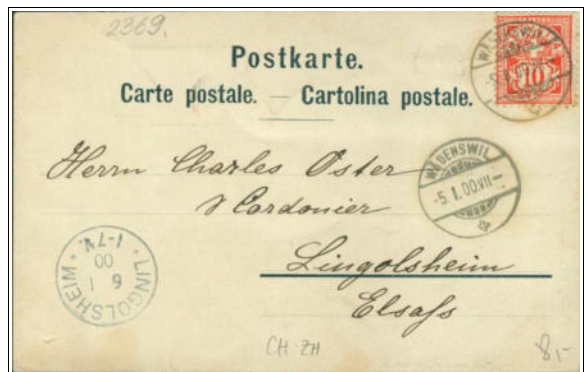 2369.
Postkarte.
Carte postale. — Cartolina postale.
WÄDENSWIL
10
Herrn Charles Oster
Cordonier
WÄDENSWIL
-5.I.00.VII-
Lingolsheim
Elsaß
LINGOLSHEIM
6 1
00
1-7N.
CH ZH
8,-